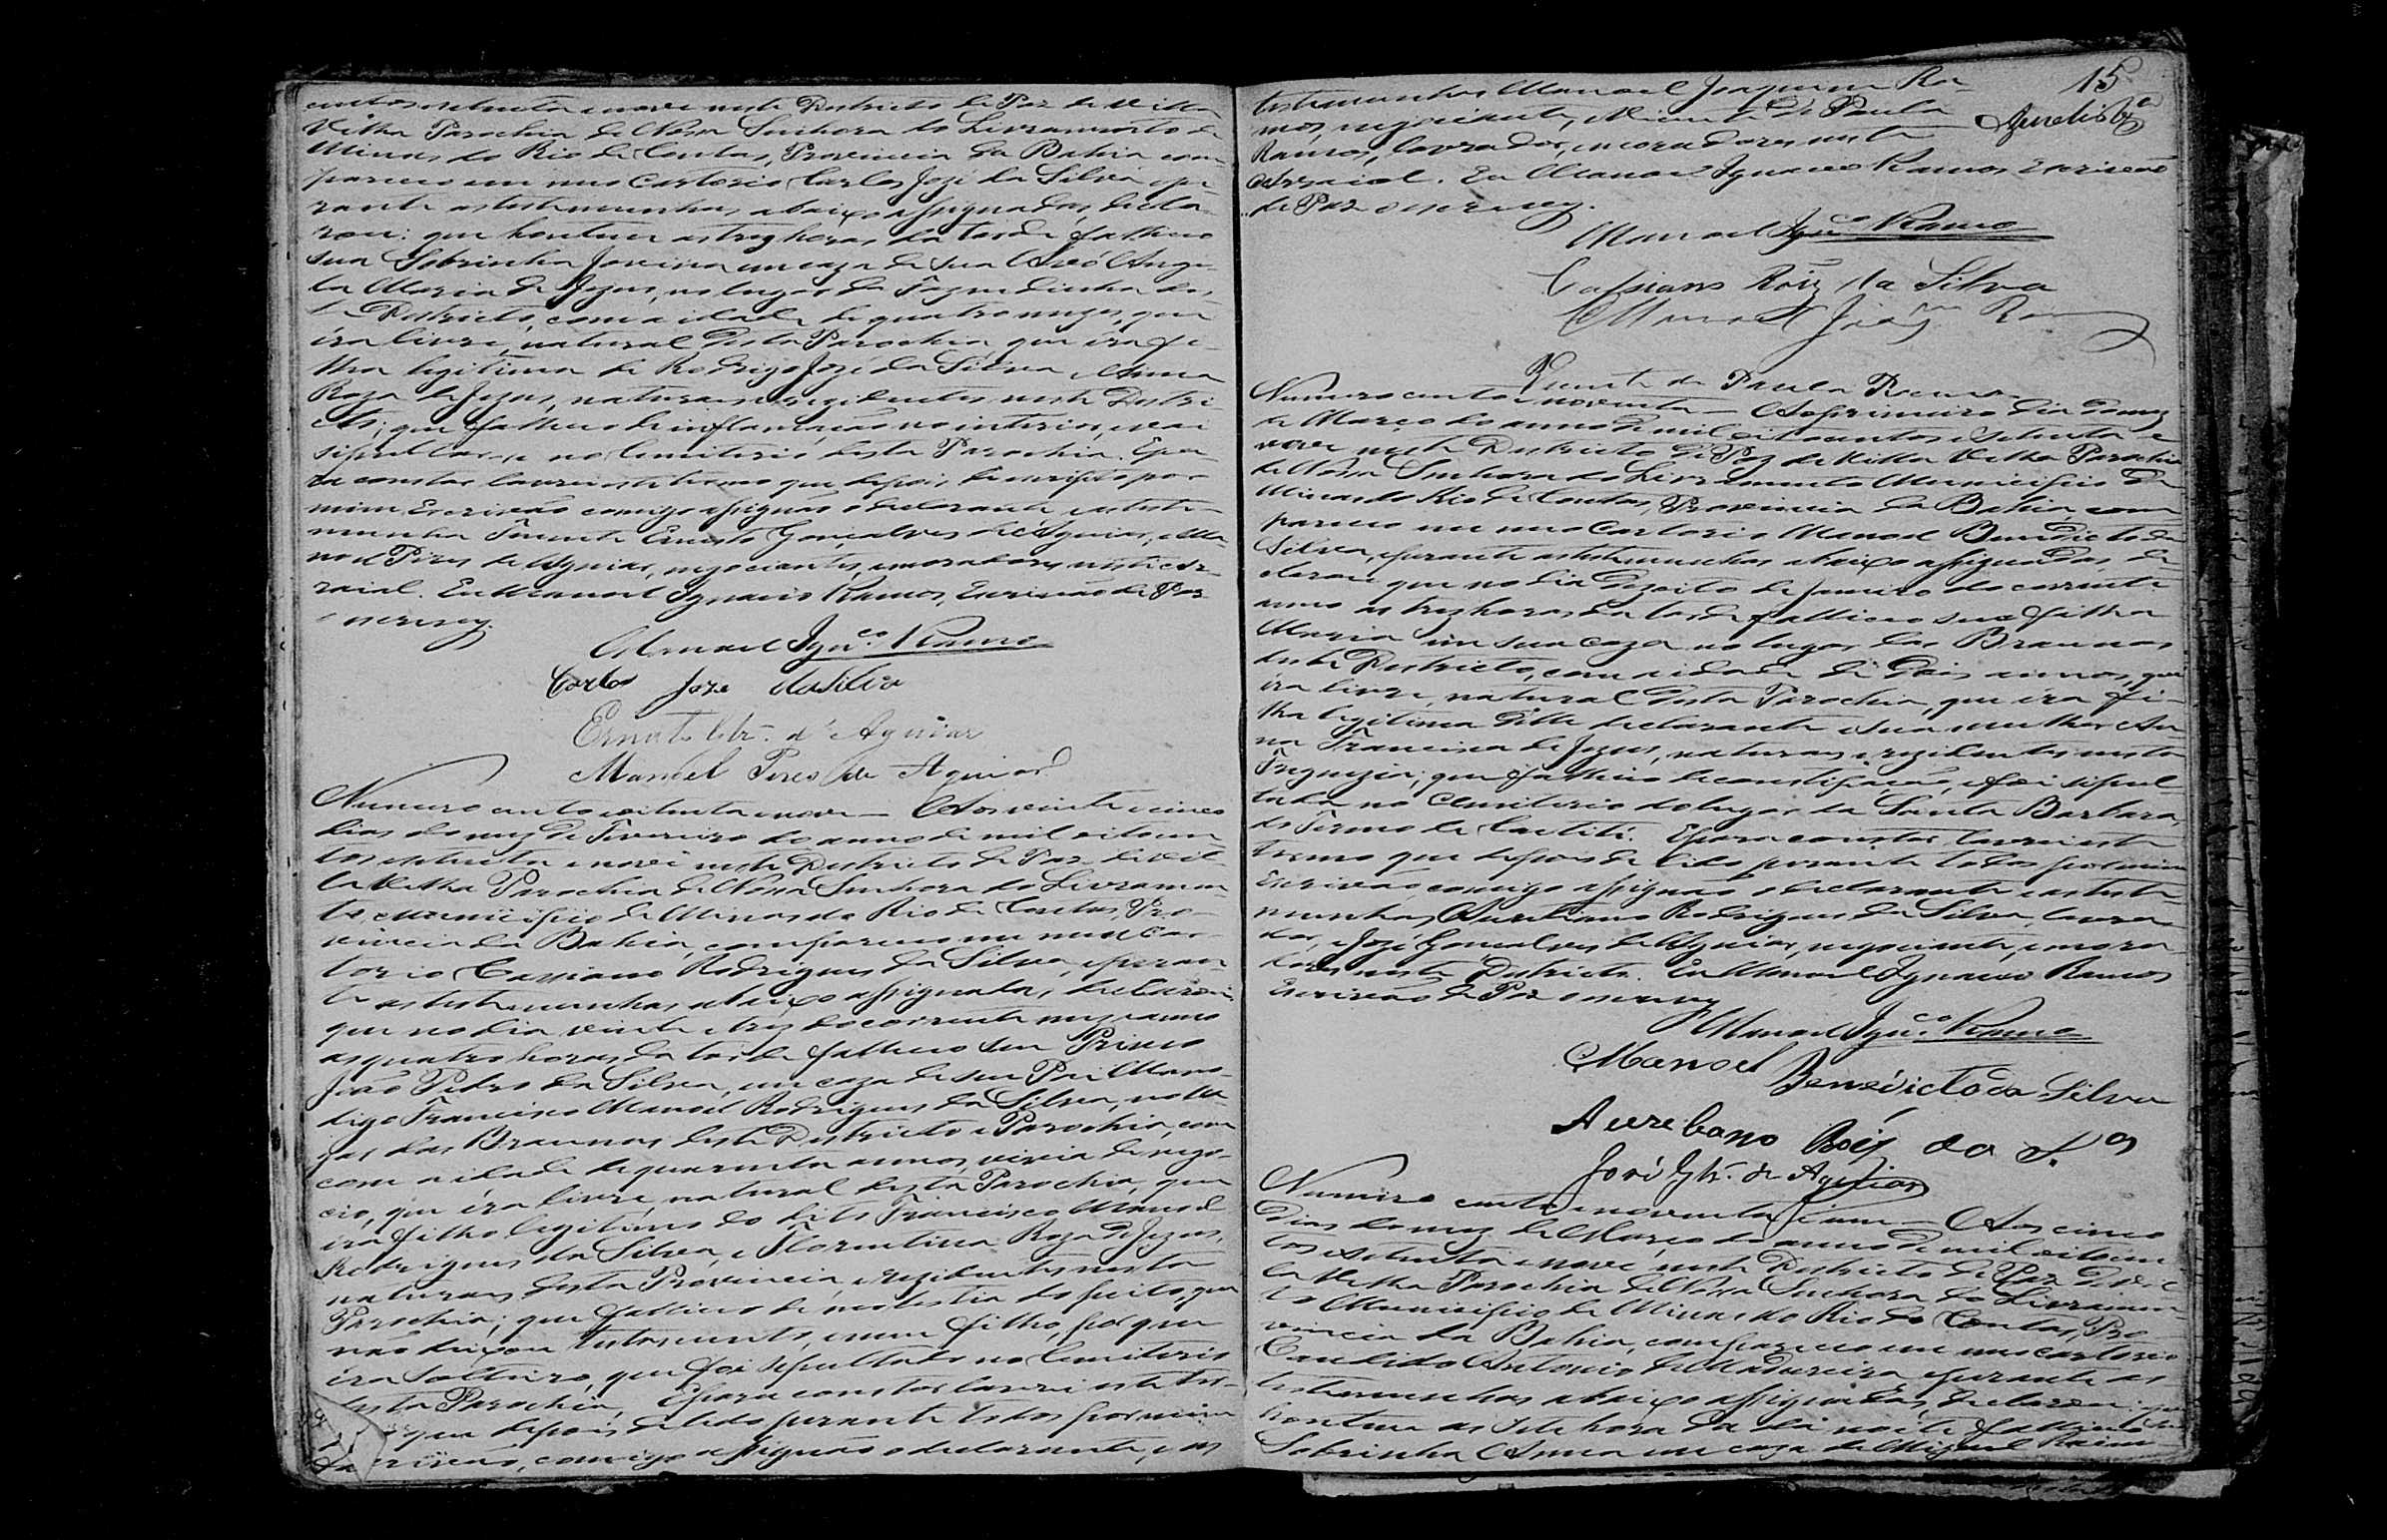 centos setenta e nove neste Districto de Paz de Villa
Velha Parochia de Nossa Senhora do Livramento de
Minas do Rio de Contas, Provincia da Bahia com-
pareceu em meu Cartorio Carlos José da Silva e pe-
rante as testemunhas abaixo assignadas, decla-
rou: que hontem as tres horas da tarde falleceu
sua Sobrinha Jovina em caza de sua Avó Ange-
la Maria de Jezus, no lugar da Fazendinha des-
te Districto, com a idade de quatro mezes, que
éra livre, natural desta Parochia, que éra fi-
lha legitima de Rodrigo José da Silva e Anna
Roza de Jezus, naturaes e rezidentes neste Distri-
cto; que falleceu de inflamação no interior, e vai
sipultar-se no Cemiterio desta Parochia. E pa-
ra constar lavrei este termo que depois de escripto por
mim Escrivão comigo assignão o declarante e as teste-
munhas Tenente Ernesto Gonçalves de Aguiar, e Ma-
noel Pires de Aguiar, negociantes, e moradores neste Ar-
raial. Eu Manoel Ignacio Ramos, Escrivão de Paz
o escrevy.
Manoel Ign.co Ramos
Carlos Joze da Silva
Ernesto Glz. d'Aguiar
Manoel Pires de Aguiar
Numero cento e oitenta e nove — Aos vinte e cinco
dias do mez de Fevereiro do anno de mil oitocen-
tos e setenta e nove neste Districto de Paz de Vil-
la Velha Parochia de Nossa Senhora do Livramen-
to, Municipio de Minas do Rio de Contas, Pro-
vincia da Bahia, compareceu em meu Car-
torio Cassiano Rodrigues da Silva, e peran-
te as testemunhas abaixo assignadas, declarou:
que no dia vinte e tres do corrente mez e anno
as quatro horas da tarde falleceu seu Primo
João Pedro da Silva, em caza de seu Pai Mano-
digo Francisco Manoel Rodrigues da Silva, no lu-
gar das Braunas deste Districto e Parochia, com
com a idade de quarenta annos, vivia de nego-
cio, que éra livre, natural desta Parochia, que
éra filho legitimo do dito Francisco Manoel
Rodrigues da Silva, e Florentina Roza de Jezus,
naturaes desta Provincia, e rezidentes nesta
Parochia; que falleceu de molestia do peito, que
não deixou testamento, e nem filho, porque
éra Solteiro, que foi sepultado no Cemiterio
desta Parochia. E para constar lavrei este ter-
que depois de lido perante todos por mim
Escrivão, comigo assignão o declarante, e as
15
testemunhas Manoel Joaquim Ra-
mos, negociante, e Vicente de Paula
Ramos, lavrador, e moradores neste
Arraial. Eu Manoel Ignacio Ramos Escrivão
de Paz o escrevy.
Manoel Ign.co Ramos
Cassiano Roiz da Silva
Manoel Joaqm Ramos
Vicente de Paula Ramos
Numero cento e noventa — Ao primeiro dia do mez
de Março do anno de mil oitocentos e setenta e
nove neste Districto de Paz de Villa Velha Parochia
de Nossa Senhora do Livramento Municipio de
Minas do Rio de Contas, Provincia da Bahia com-
pareceu em meu Cartorio Manoel Benedicto da
Silva, e perante as testemunhas abaixo assignadas, de-
clarou que no dia dezoito de Janeiro do corrente
anno as tres horas da tarde falleceu sua filha
Maria em sua caza no lugar das Braunas
deste Districto, com a idade de dois annos, que
éra livre, natural desta Parochia, que éra fi-
lha legitima delle declarante e sua mulher An-
na Francisca de Jezus, naturaes e rezidentes nesta
Freguezia; que falleceu de constipação, e foi sipul-
tada no Cemiterio do lugar da Santa Barbara,
do Termo de Caetité. E para constar lavrei este
termo que depois de lido perante todos por mim
Escrivão comigo assignão o declarante e as teste-
munhas, Aureliano Rodrigues da Silva, lavra-
dor, e José Gonçalves de Aguiar, negociante, e mora-
dores neste Districto. Eu Manoel Ignacio Ramos
Escrivão de Paz o escrevy
Manoel Ign.co Ramos
Manoel Benedicto da Silva
Aureliano Roiz da S.a
José Glz. de Aguiar
Numero cento e noventa e um — Aos cinco
dias do mez de Março do anno de mil oitocen-
tos e setenta e nove neste Districto de Paz de Vil-
la Velha Parochia de Nossa Senhora do Livramen-
to Municipio de Minas do Rio de Contas, Pro-
vincia da Bahia, compareceu em meu cartorio
Candido Antonio de Madureira e perante as
testemunhas abaixo assignadas, declarou: que
hontem as sete hora da noite falleceu sua
Sobrinha Anna em caza de Miguel